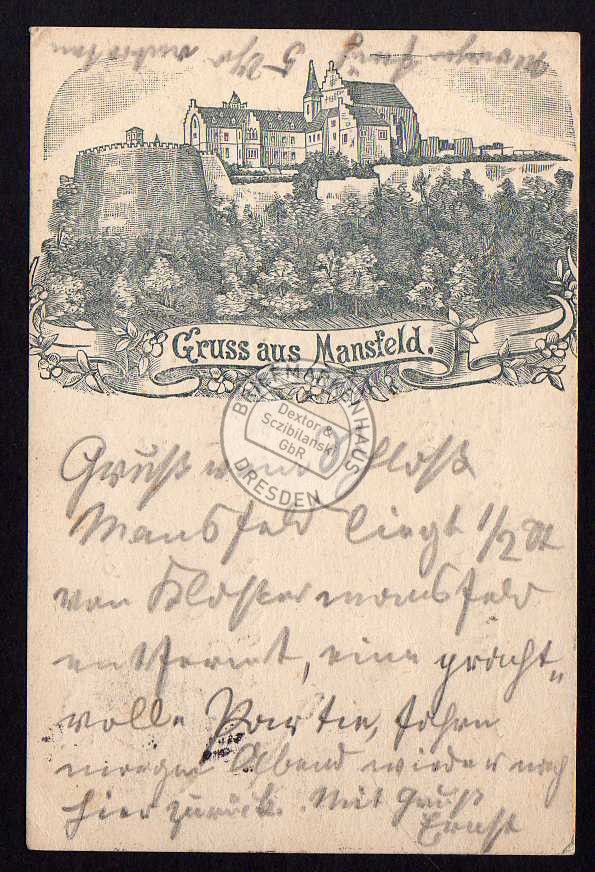 Gruss aus Mansfeld.
BRIEFMARKENHAUS
Dextor &
Sczibilanski
GbR
DRESDEN
Gruß vom Schloß
Mansfeld liegt 1/2 St
von Klostermansfeld
entfernt, eine pracht-
volle Partie, fahre
morgen Abend wieder nach
hier zurück. Mit Gruß
Ernst
Morgen früh 5 Uhr